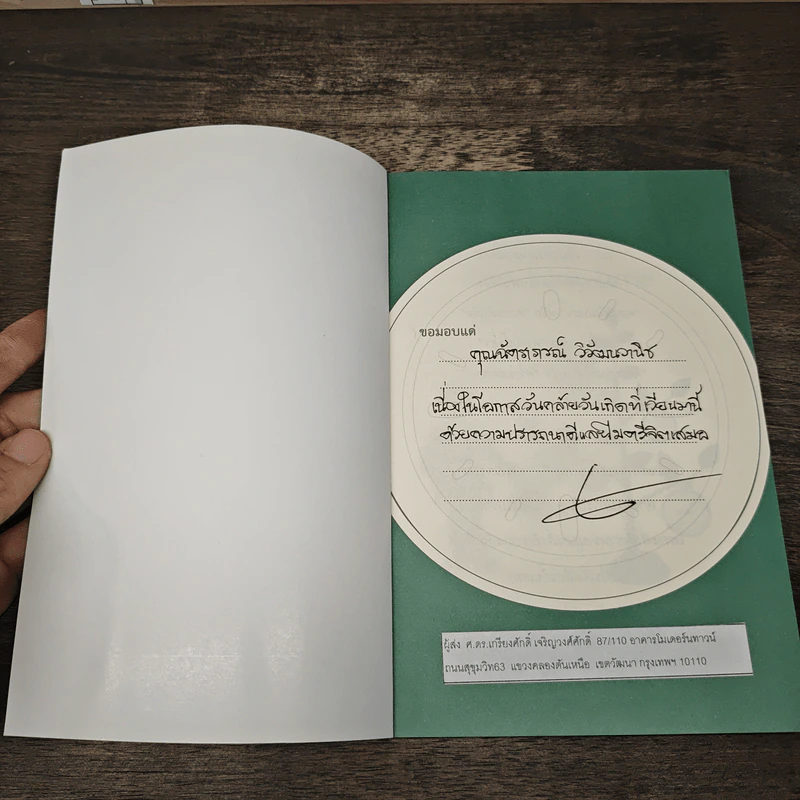 ขอมอบแด่
คุณฉัตราภรณ์ วิวัฒนวานิช
เนื่องในโอกาสวันคล้ายวันเกิดที่เวียนมานี้
ด้วยความปรารถนาดีและมีมตรีจิตเสมอ
ผู้ส่ง ศ.ดร.เกรียงศักดิ์ เจริญวงศ์ศักดิ์ 87/110 อาคารโมเดอร์นทาวน์
ถนนสุขุมวิท63 แขวงคลองตันเหนือ เขตวัฒนา กรุงเทพฯ 10110